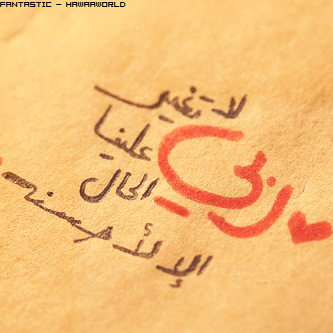 FANTASTIC - HAWAAWORLD
لا تغير
علينا
ربي
الحال
إلا لأحسنه